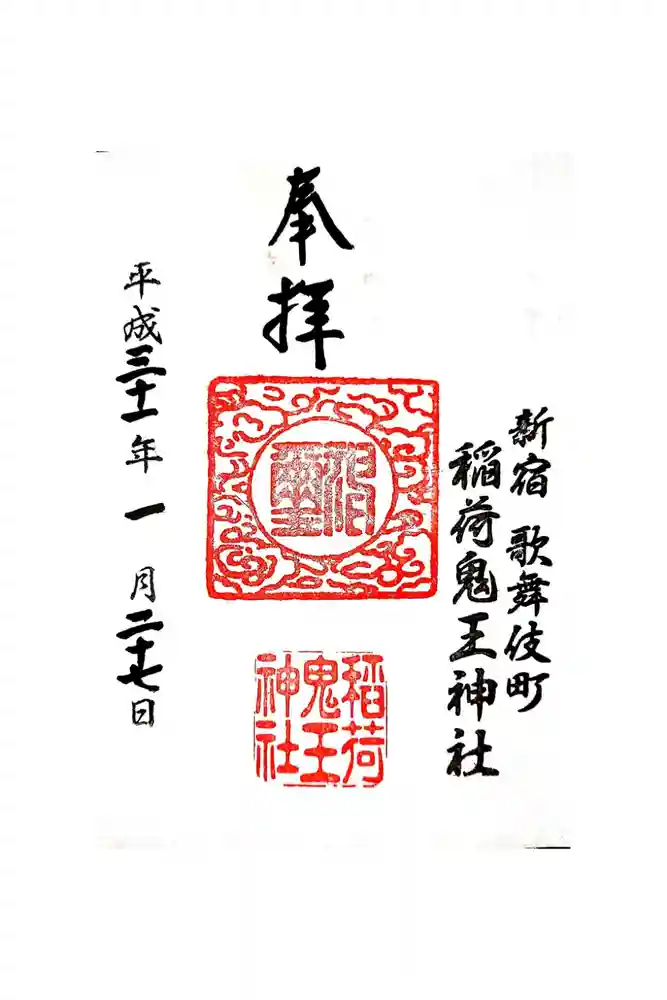 新宿 歌舞伎町
稲荷鬼王神社
奉拝
稲荷
鬼王
神社
平成三十一年一月二十七日